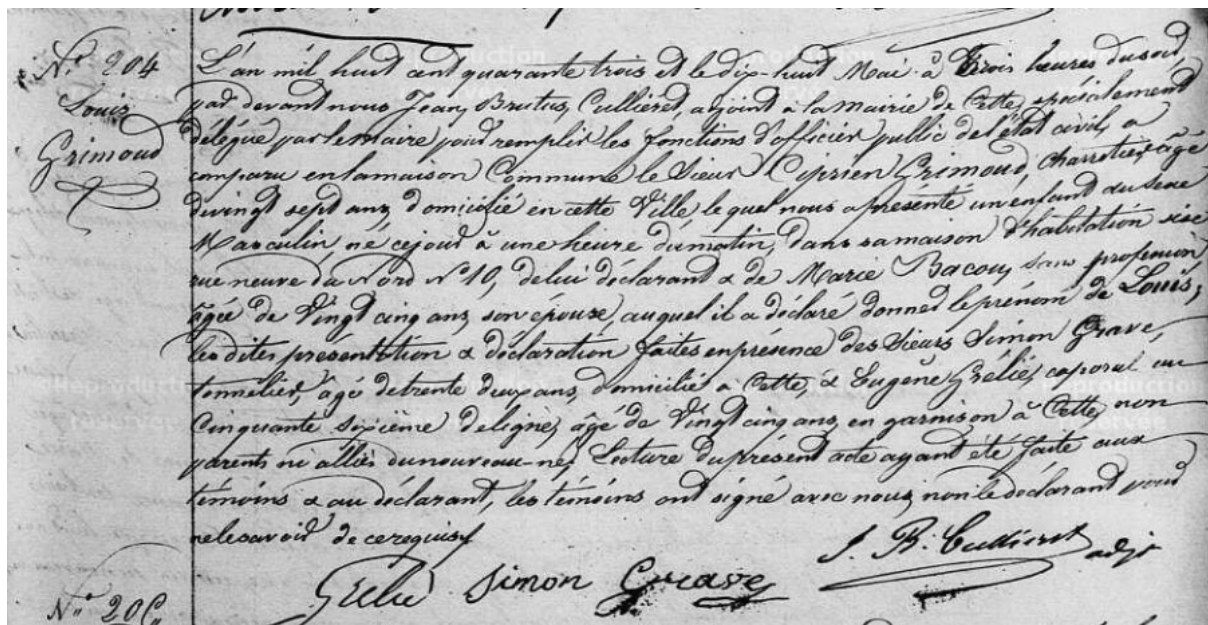 N.° 204
Louis
Grimoud
L'an mil huit cent quarante trois et le dix-huit Mai à trois heures du soir,
par devant nous Jean, Brutus, Cullieret, adjoint à la mairie de Cette, spécialement
délégué par le maire pour remplir les fonctions d'officier public de l'état civil, a
comparu en la maison Commune le Sieur Ciprien Grimoud, charretier, âgé
de vingt sept ans, domicilié en cette Ville, le quel nous a présenté un enfant du Sexe
Masculin, né ce jour à une heure du matin, dans sa maison d'habitation sise
rue neuve du Nord N° 10, de lui déclarant & de Marie Bacou, sans profession,
âgée de Vingt cinq ans, son épouse, auquel il a déclaré donner le prénom de Louis,
les dites présentation & déclaration faites en présence des Sieurs Simon Grave,
tonnelier, âgé de trente deux ans, domicilié à Cette, & Eugène Grélié, caporal au
Cinquante Sixième de ligne, âgé de Vingt cinq ans, en garnison à Cette, non
parents ni alliés du nouveau-né, Lecture du présent acte ayant été faite aux
témoins & au déclarant, les témoins ont signé avec nous, non le déclarant pour
ne le savoir de ce requis./
Grelié Simon Grave J. B. Cullieret adjt
N.°